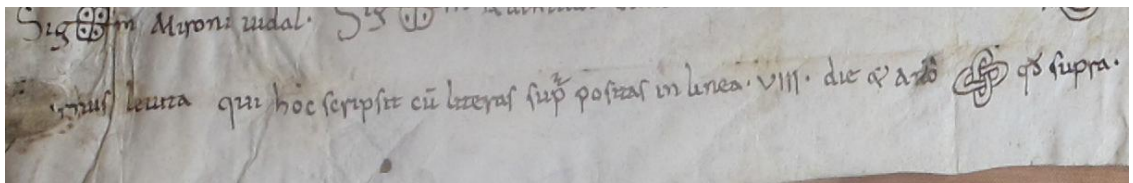 Sig in Mironi uidal. Sig in
leuita qui hoc scripsit cū literas sup̄ positas in linea. VIII. die & anō qđ supra.